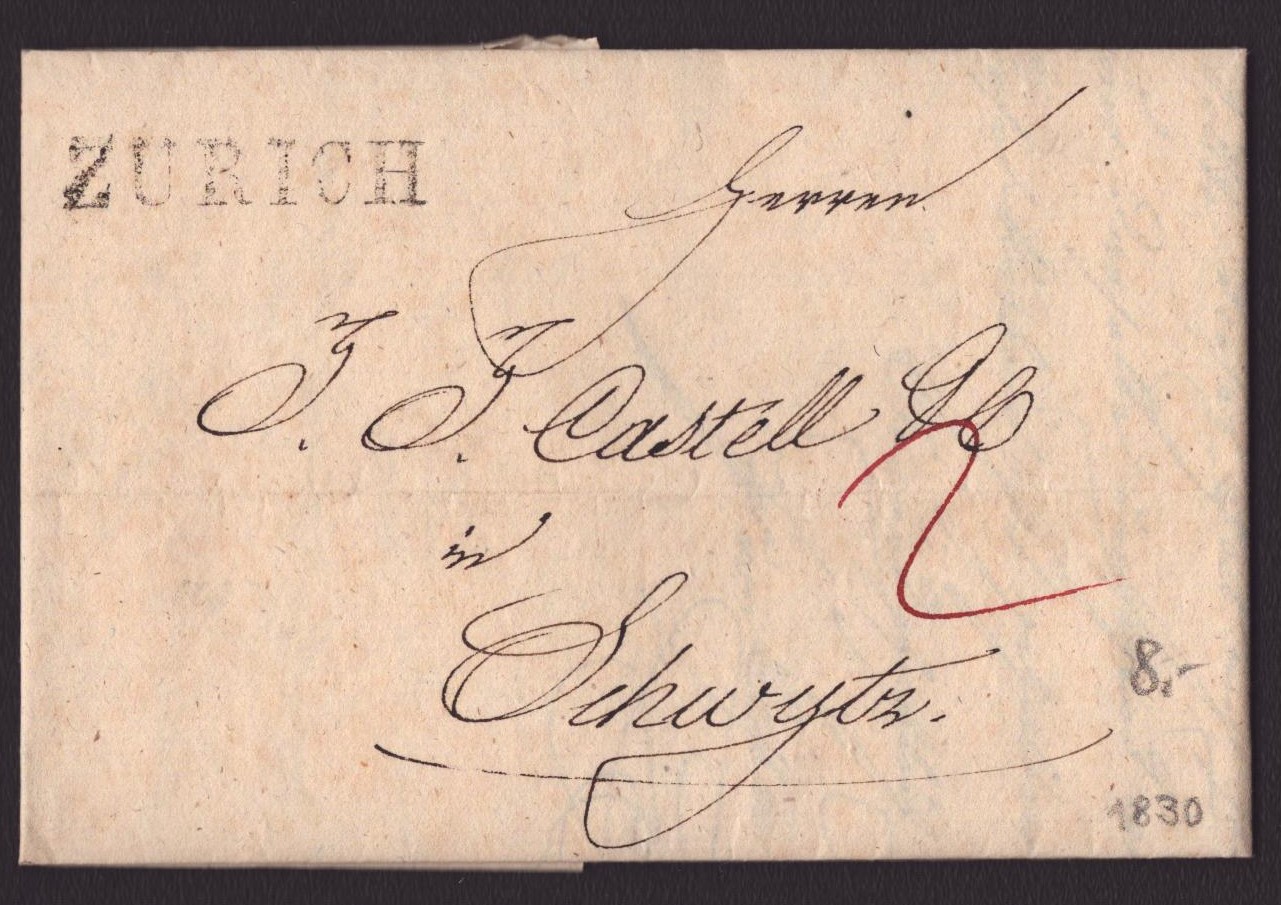 ZURICH
Herren
J. J. Castell & C
in
Schwytz.
2
8.-
1830